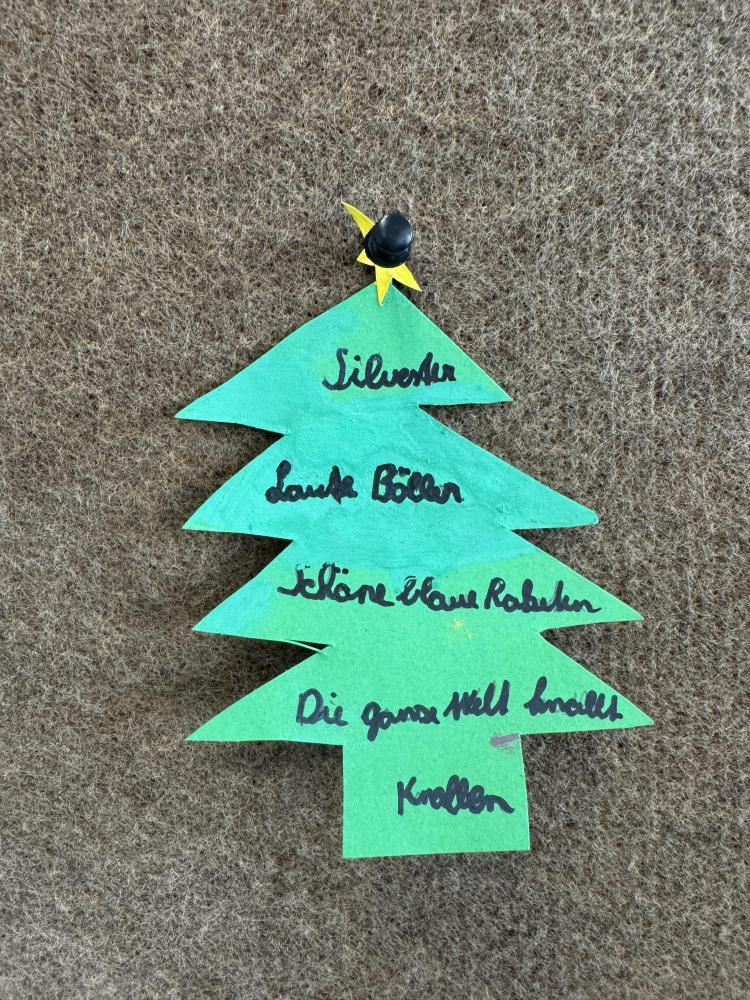 Silvester
Laute Böller
Schöne blaue Raketen
Die ganze Welt knallt
Knallen